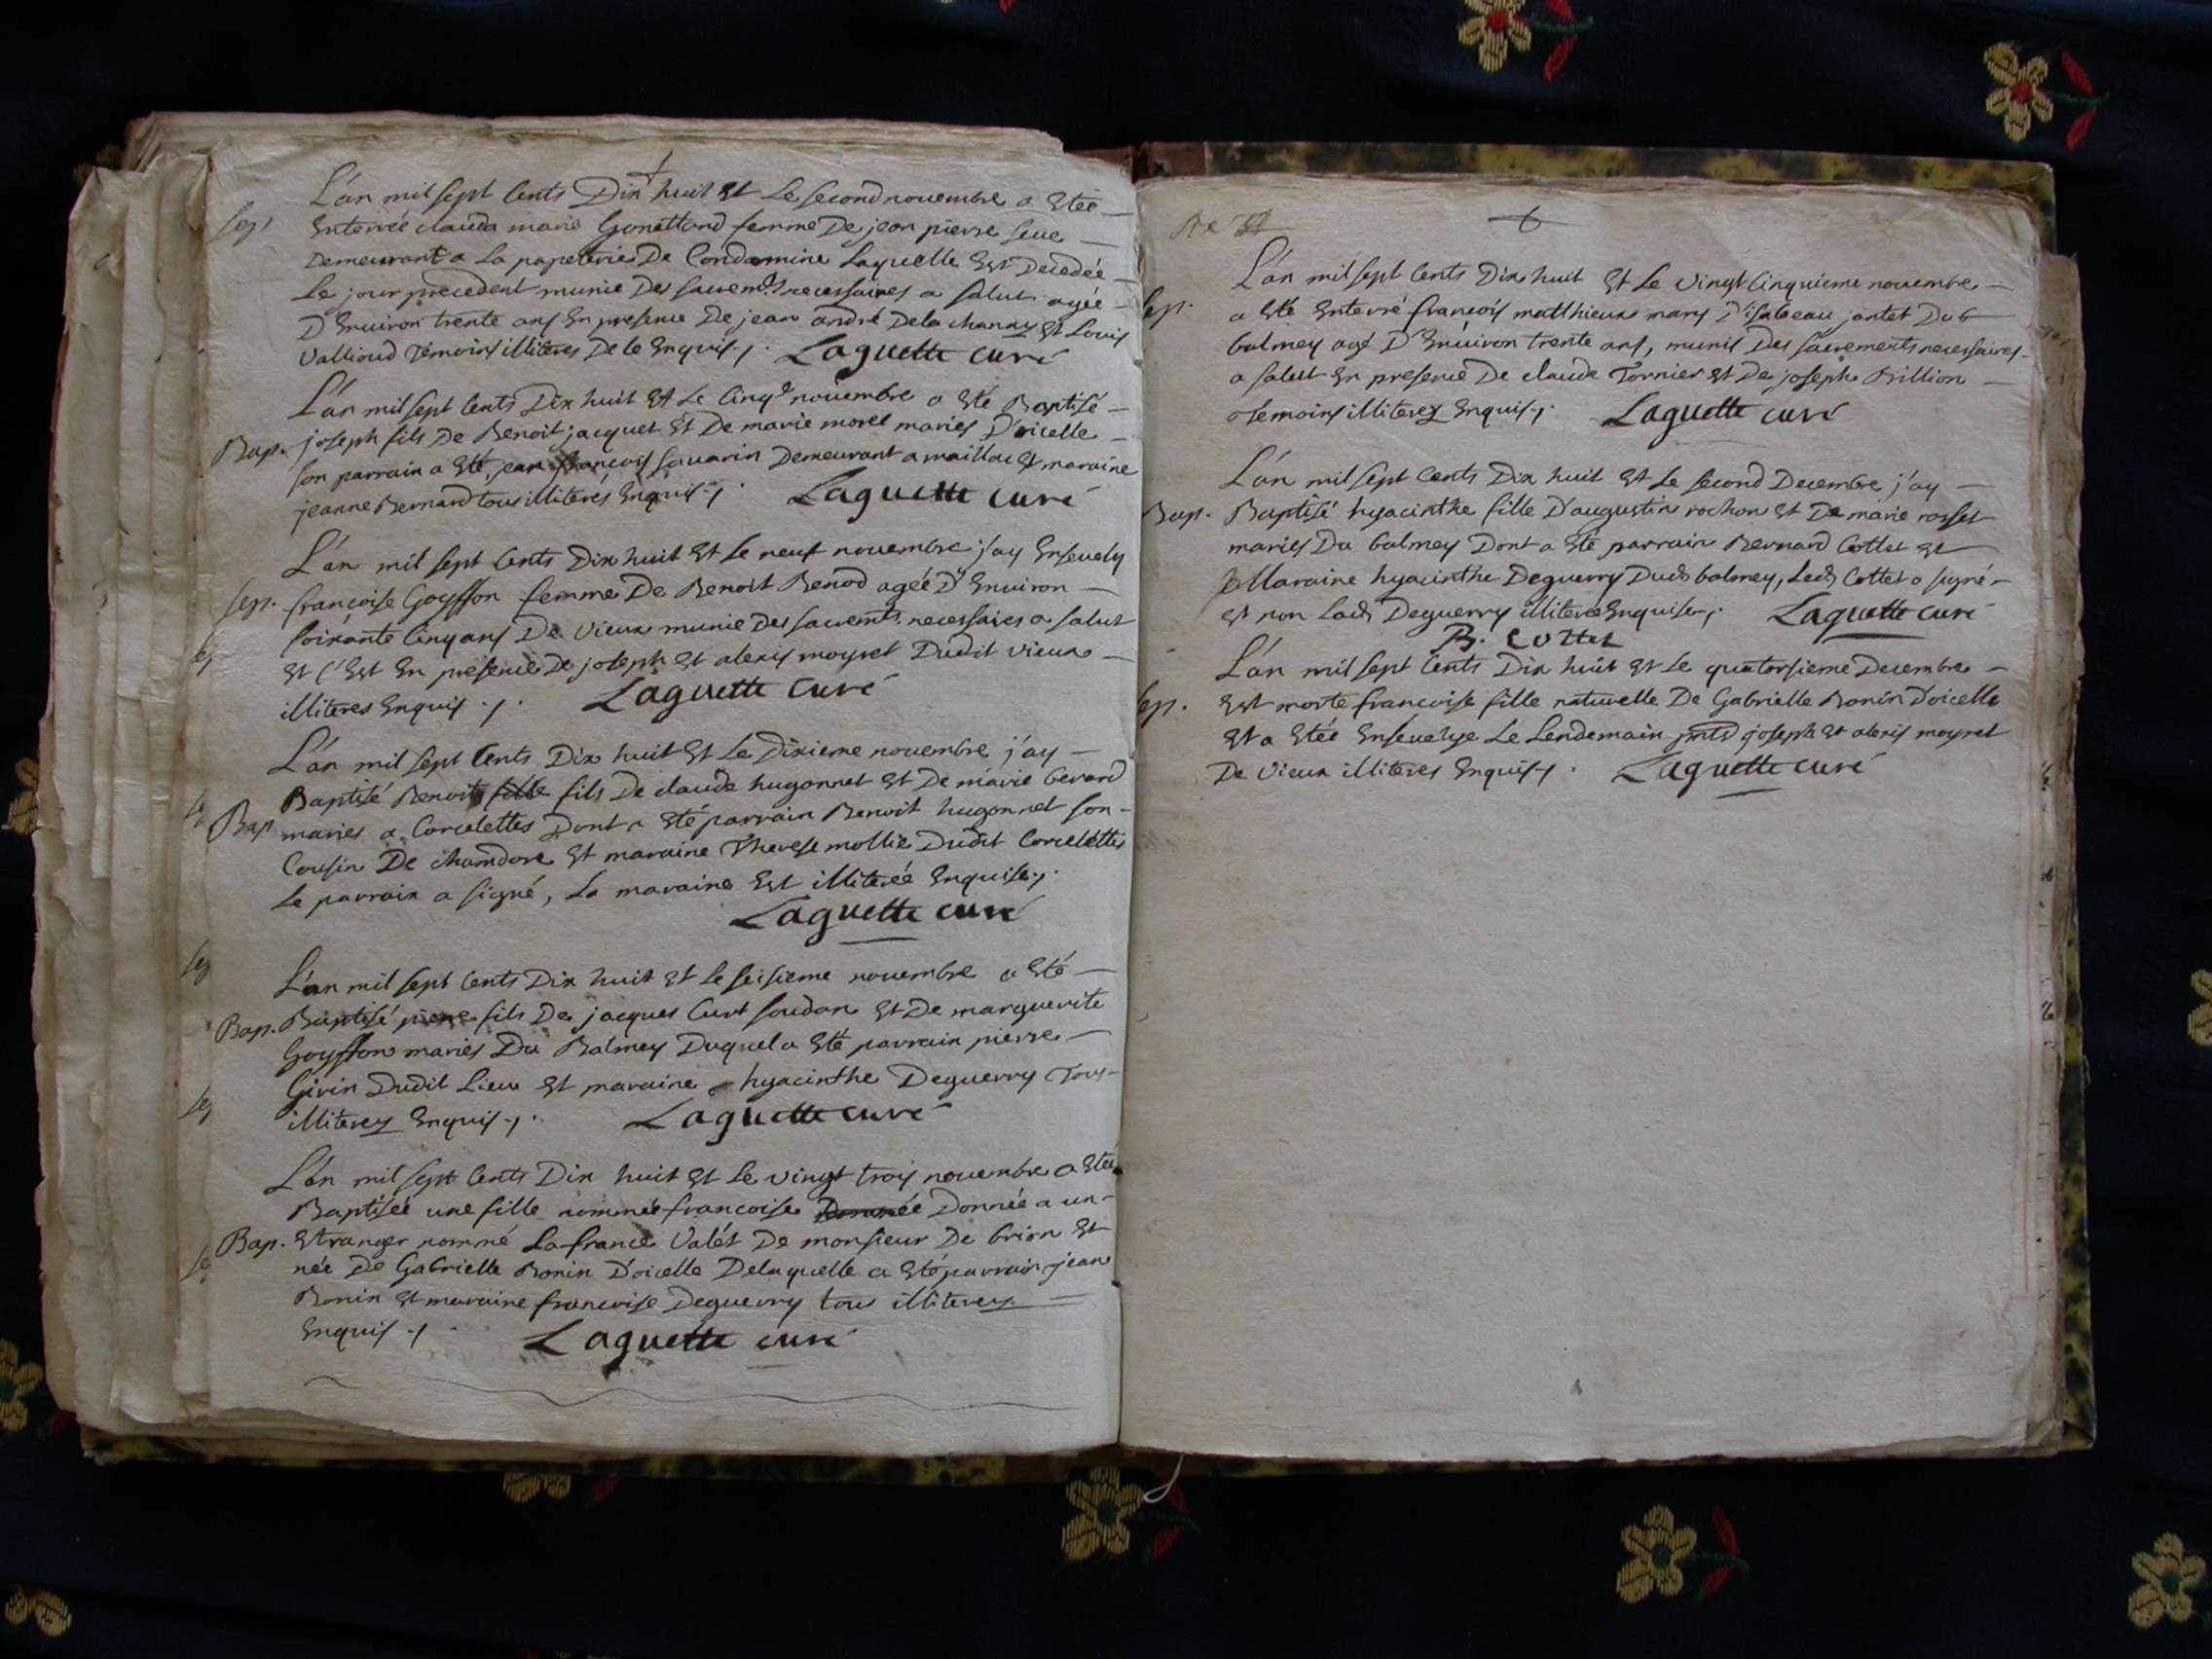 L'an mil sept Cents Dix huit Et Le second novembre a Etée
Sep. Enterrée clauda marie Gonettand femme De jean pierre seve
Demeurant a La papeterie De Condamine Laquelle Est Decedée
Le jour precedent munie Des sacremts necessaires a salut agée
D'Environ trente ans En presence De jean andré Dela channay Et Louis
Vallioud Témoins illiteres De ce Enquis ./. Laguette curé
L'an mil sept Cents Dix huit Et Le Cinqe novembre a Eté Baptisé
Bap. joseph fils De Benoit jacquet Et De marie morel mariés D'oicelle
son parrain a Eté jean françois savarin Demeurant a maillac Et maraine
jeanne Bernard tous illiterés Enquis ./. Laguette curé
L'an mil sept Cents Dix huit Et Le neuf novembre j'ay Ensevely
Sep. françoise Goyffon femme De Benoit Benod agée D'Environ
soixante Cinq ans De Vieux munie Des sacremts necessaires a salut
Et C'Est En presence De joseph Et alexis moyret Dudit Vieux
illiteres Enquis ./. Laguette Curé
L'an mil sept Cents Dix huit Et Le Dixieme novembre j'ay
Baptisé Benoit fille fils De claude hugonnet Et De marie Gerard
Bap mariés a Corcelettes Dont a Eté parrain Benoit hugonnet son
Cousin De chamdore Et maraine Therese mollie Dudit Corcelettes
Le parrain a signé, La maraine Est illiterée Enquise ./.
Laguette curé
L'an mil sept Cents Dix huit Et Le seisieme novembre a Eté
Bap. Baptisé pierre fils De jacques Curt soudan Et De marguerite
Goyffon mariés Du Balmey Duquel a Eté parrain pierre
Girin Dudit Lieu Et maraine hyacinthe Deguerry Tous
illiterez Enquis ./. Laguette curé
L'an mil sept Cents Dix huit Et Le vingt trois novembre a Etée
Baptisée une fille nommée francoise Donnée a un
Bap. Etranger nommé La france Valét De monsieur De brion Et
née De Gabrielle Bonin D'oicelle Delaquelle a Eté parrain jean
Bonin Et maraine francoise Deguerry tous illiterez
Enquis ./. Laguette curé
L'an mil sept Cents Dix huit Et Le vingt Cinquieme novembre
Sep. a Eté Enterré françois matthieux mary D'isabeau jantet Du
balmey agé D'Enuiron trente ans, munis Des sacrements necessaires
a salut En presence De claude Tornier Et De joseph Billion
Temoins illiterez Enquis ./. Laguette curé
L'an mil sept Cents Dix huit Et Le second Decembre j'ay
Bap. Baptisé hyacinthe fille D'augustin rochon Et De marie rosset
mariés Du balmey Dont a Eté parrain Bernard Cottet Et
Maraine hyacinthe Deguerry Dud balmey, Led Cottet a signé
Et non Lad Deguerry illiterée Enquise ./. Laguette curé
B. Cottet
L'an mil sept Cents Dix huit Et Le quatorsieme Decembre
Sep. Est morte francoise fille naturelle De Gabrielle Bonin D'oicelle
Et a Etée Ensevelye Le Lendemain pnts joseph Et alexis moyret
De Vieux illiteres Enquis ./. Laguette curé